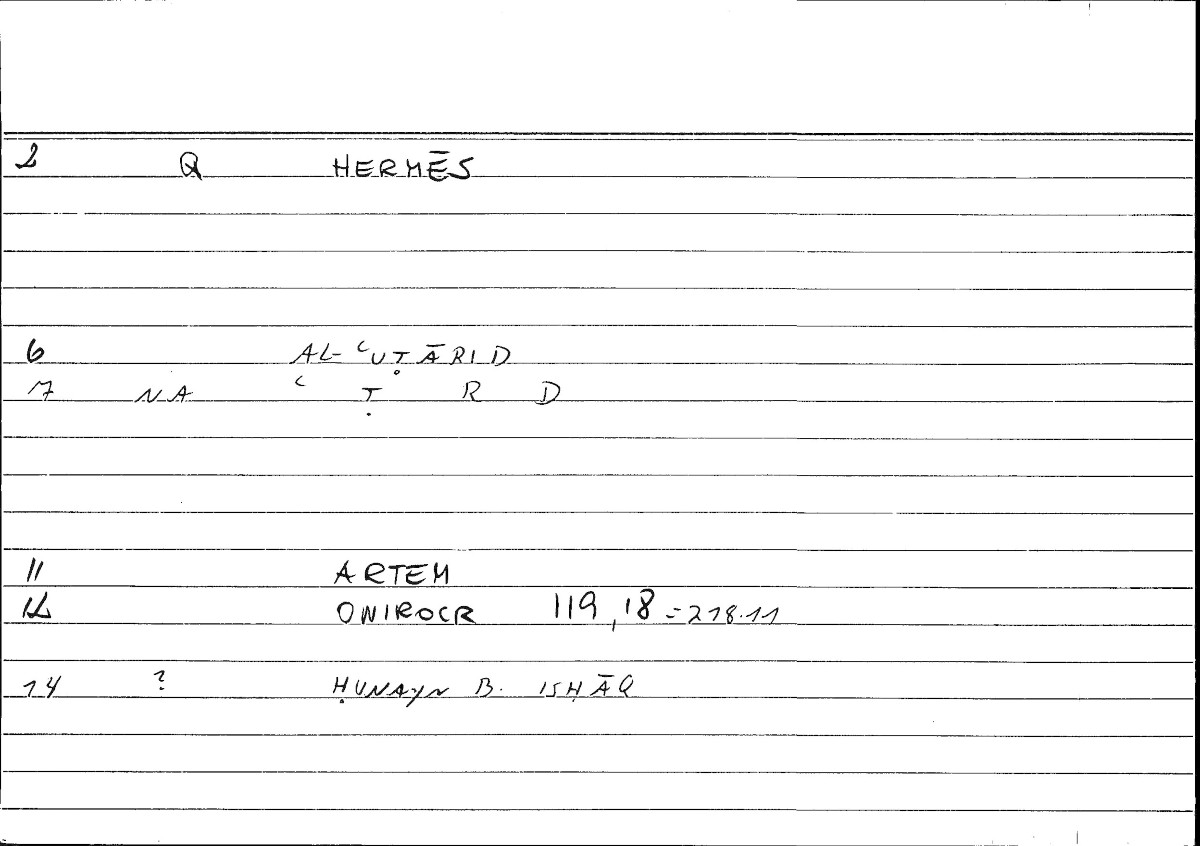 2 Q HERMĒS
6 AL-ʿUṬĀRID
7 NA ʿ Ṭ R D
11 ARTEM
12 ONIROCR 119,18=218.11
14 ? ḤUNAYN B. ISḤĀQ